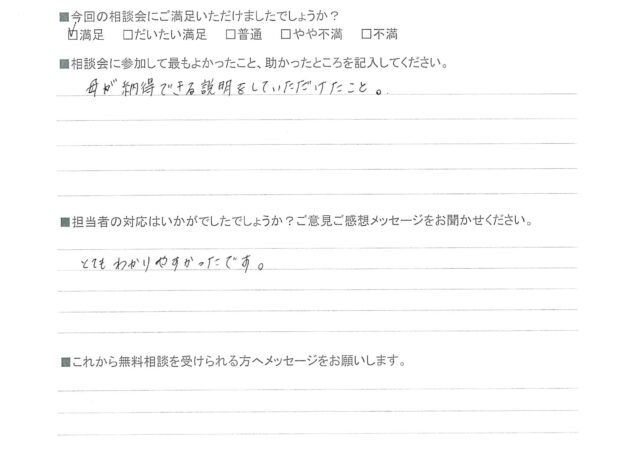 ■今回の相談会にご満足いただけましたでしょうか？
☑満足 □だいたい満足 □普通 □やや不満 □不満
■相談会に参加して最もよかったこと、助かったところを記入してください。
母が納得できる説明をしていただけたこと。
■担当者の対応はいかがでしたでしょうか？ご意見ご感想メッセージをお聞かせください。
とてもわかりやすかったです。
■これから無料相談を受けられる方へメッセージをお願いします。